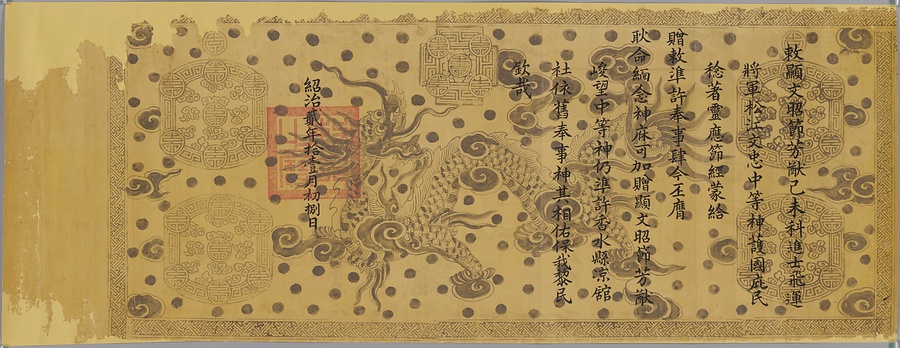 敕顯文昭節芳猷己未科進士飛運
將軍松江文忠中等神護國庇民
稔著靈應節經蒙給
贈敕準許奉事肆今丕膺
耿命緬念神庥可加贈顯文昭節芳猷
峻望中等神仍準許香水縣涼舘
社依舊奉事神其相佑保我黎民
欽哉
紹治貳年拾壹月初捌日